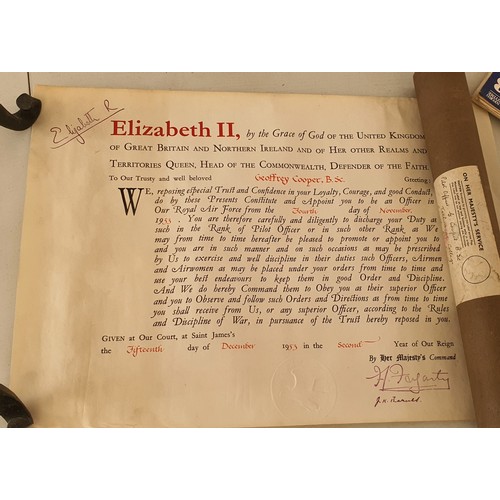 Elizabeth R
Elizabeth II, by the Grace of God of the United Kingdom
of Great Britain and Northern Ireland and of Her other Realms and
Territories Queen, Head of the Commonwealth, Defender of the Faith.
To Our Trusty and well beloved Geoffrey Cooper, B.Sc. Greeting:
We, reposing especial Trust and Confidence in your Loyalty, Courage, and good Conduct,
do by these Presents Constitute and Appoint you to be an Officer in
Our Royal Air Force from the Fourth day of November,
1953. You are therefore carefully and diligently to discharge your Duty as
such in the Rank of Pilot Officer or in such other Rank as We
may from time to time hereafter be pleased to promote or appoint you to
and you are in such manner and on such occasions as may be prescribed
by Us to exercise and well discipline in their duties such Officers, Airmen
and Airwomen as may be placed under your orders from time to time and
use your best endeavours to keep them in good Order and Discipline.
And We do hereby Command them to Obey you as their superior Officer
and you to Observe and follow such Orders and Directions as from time to time
you shall receive from Us, or any superior Officer, according to the Rules
and Discipline of War, in pursuance of the Trust hereby reposed in you.
Given at Our Court, at Saint James's
the Fifteenth day of December 1953 in the Second Year of Our Reign
By Her Majesty's Command
ON HER MAJESTY'S SERVICE